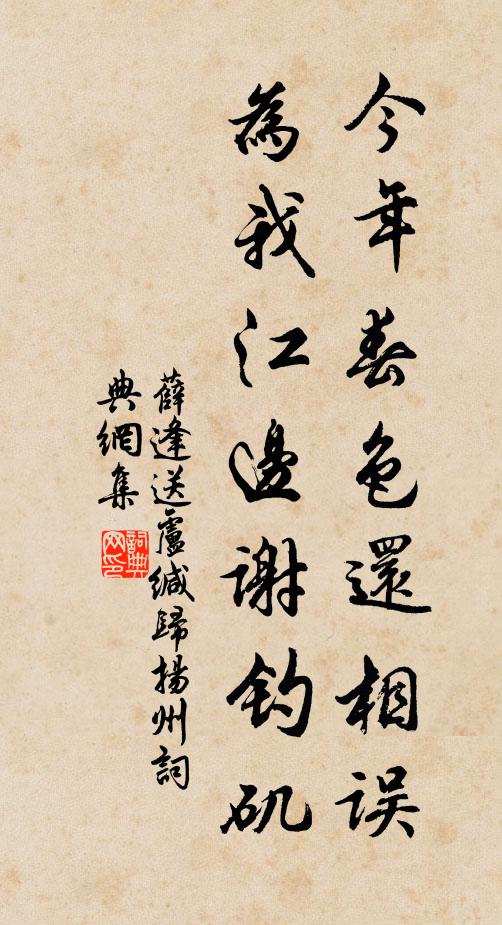 今年春色還相误
為我江邊謝钓矶
薛逢送盧缄歸揚州詞
典網集
詞典
网印